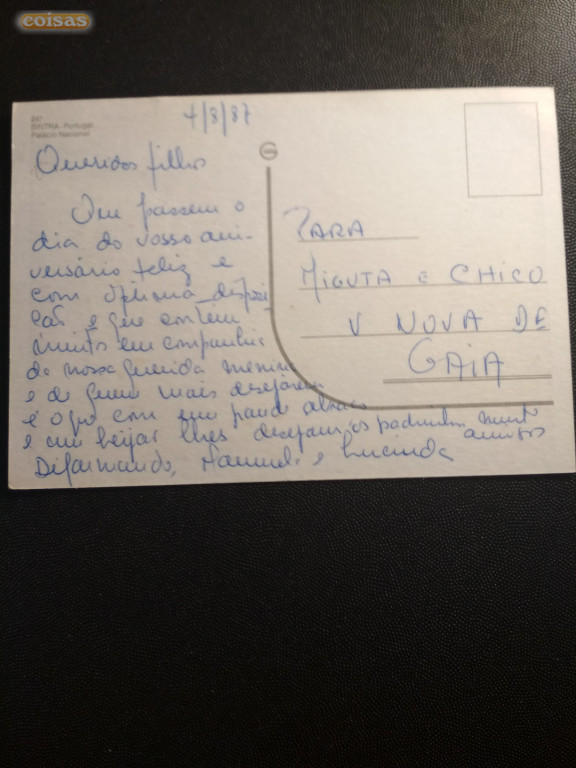 coisas
247
SINTRA - Portugal
Palácio Nacional
4/8/87
Queridos filhos
Que passem o
dia do vosso ani-
versário feliz e
com óptima disposi-
ção e que contem
muito em companhia
da nossa querida menina
e de quem mais desejarem
é o que com um grande abraço
e um beijar lhes desejam os padrinhos muito
amigos
Manuel e Lucinda
PARA
MIGUTA E CHICO
V NOVA DE
GAIA